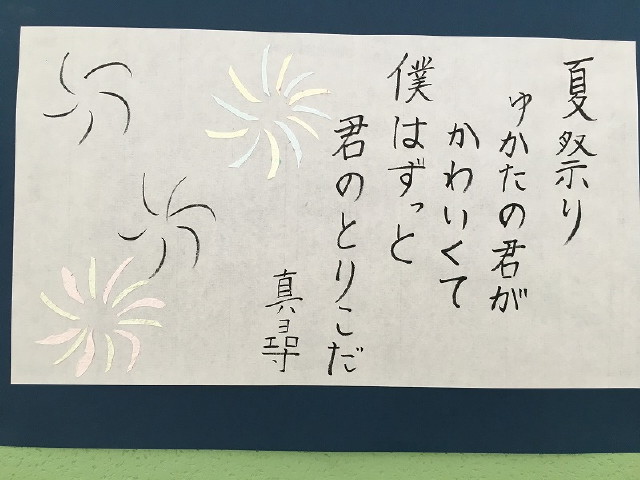 夏祭り
ゆかたの君が
かわいくて
僕はずっと
君のとりこだ
真尋